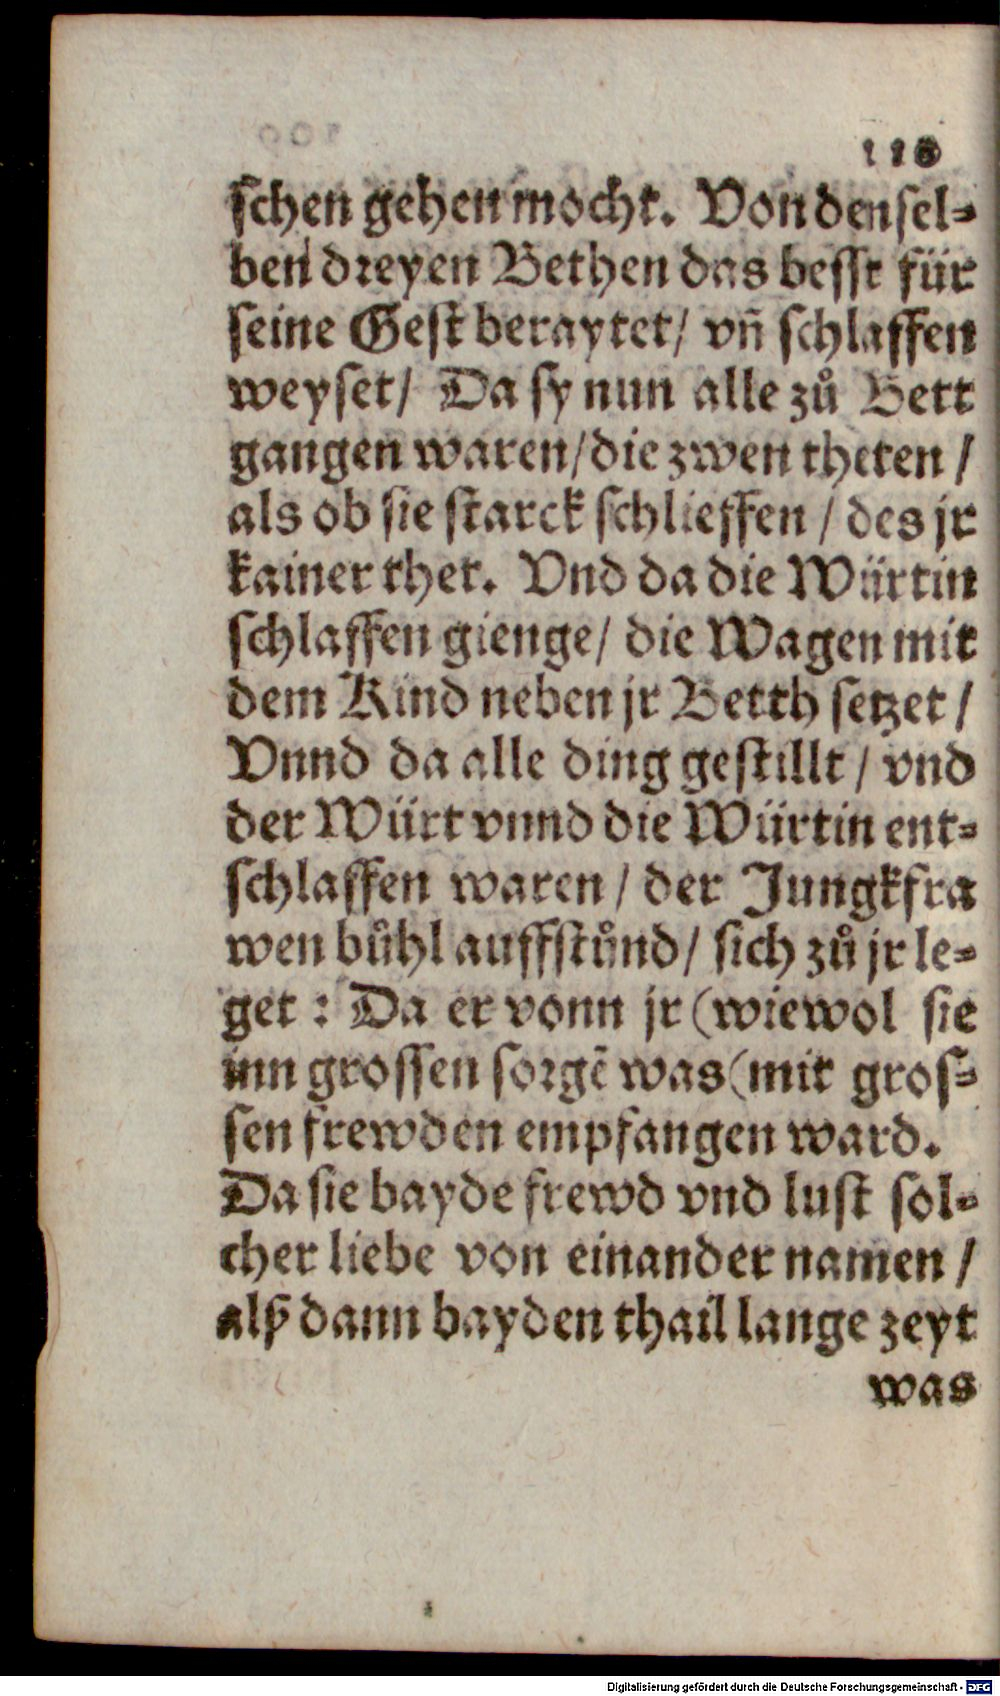 118
schen gehen mocht. Von densel-
ben dreyen Bethen das besst für
seine Gest beraytet/ vñ schlaffen
weyset/ Da sy nun alle zů Bett
gangen waren/die zwen theten /
als ob sie starck schlieffen / des jr
kainer thet. Vnd da die Würtin
schlaffen gienge/ die Wagen mit
dem Kind neben jr Betth setzet /
Vnnd da alle ding gestillt / vnd
der Würt vnnd die Würtin ent-
schlaffen waren / der Jungkfra
wen bůhl auffstůnd/ sich zů jr le-
get : Da er vonn jr (wiewol sie
inn grossen sorgē was( mit gros-
sen frewden empfangen ward.
Da sie bayde frewd vnd lust sol-
cher liebe von einander namen /
alß dann bayden thail lange zeyt
was
Digitalisierung gefördert durch die Deutsche Forschungsgemeinschaft - DFG